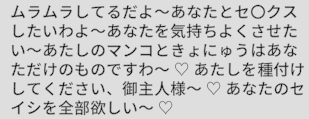 ムラムラしてるだよ～あなたとセ〇クス
したいわよ～あなたを気持ちよくさせた
い～あたしのマンコときょにゅうはあな
ただけのものですわ～ ♡ あたしを種付け
してください、御主人様～ ♡ あなたのセ
イシを全部欲しい～ ♡